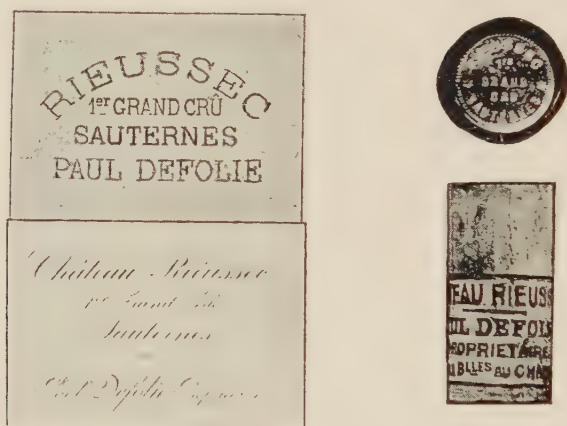 RIEUSSEC
1er GRAND CRÛ
SAUTERNES
PAUL DEFOLIE
Château Rieussec
1er Grand Crû
Sauternes
Paul Defolie
EAU RIEUSS
UL DEFOLI
ROPRIETAIRE
BLLES AU CHA